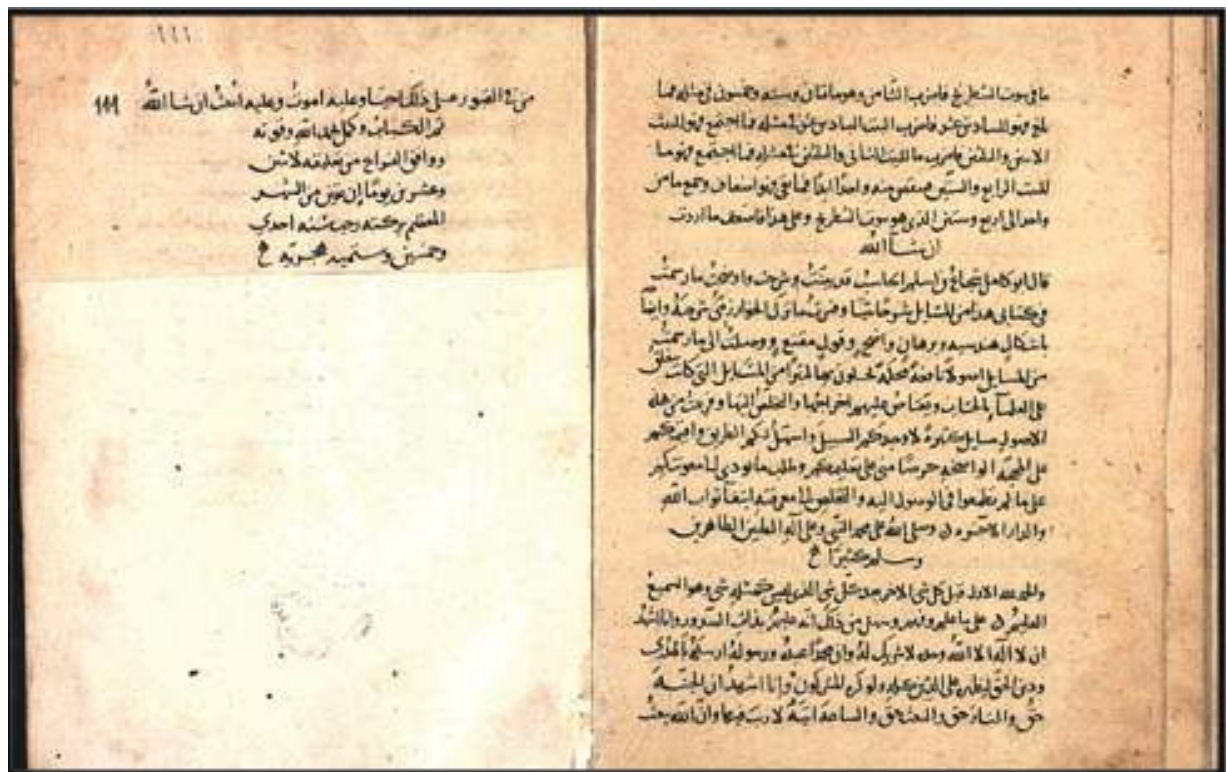 ما في بيوت الشطرنج فاضرب الثامن وهو مائتان وستة وخمسون في مثله فما
بلغ فهو للسادس عشر فاضرب البيت السادس عشر في مثله فما اجتمع فهو للبيت
الاثنين والثلثين فاضرب ما للبيت الثاني والثلثين في مثله فما اجتمع فهو ما
للبيت الرابع والستين فينقص منه واحدا ابدا فما بقي فهو اضعاف وجمع ما من
واحد الى اربع وستين الذي هو بيوت الشطرنج وعلى هذا فاضعف ما اردت
ان شا الله
قال ابو كامل شجاع بن اسلم الحاسب قد بينت وشرحت واوضحت ما رسمت
في كتابي هذا من المسايل شرحا بينا وضربت ما ترك الخوارزمي شرحه وايضا
باشكال هندسيه وبرهان واضح وقول مقنع ووصلت الى ما رسمت
من المسايل اصولا نافعة محكمة يحلون بها كثيرا من المسايل التي كانت تغلق
على العلماء بالحساب ويعتاص عليهم اخراجها والتخلص اليها وفرعت من هذه
الاصول مسايل كثيرة لاوجدكم السبيل واسهل لكم الطريق واقيمكم
على المحجة الواضحة حرصا مني على تعليمكم وطلب ما يودي الى معونتكم
على ما لم تطمعوا في الوصول اليه والتخلص الى معرفته ابتغا ثواب الله
والدار الاخره وصلى الله على محمد النبي وعلى آله الطيبين الطاهرين
وسلم كثيرا
والحمد لله الاول قبل كل شي الاخر بعد كل شي الذي ليس كمثله شي وهو السميع
العليم على ما علم وفهم وسهل من ذلك انه عليم بذات الصدور وانا اشهد
ان لا اله الا الله وحده لا شريك له وان محمدا عبده ورسوله ارسله بالهدى
ودين الحق ليظهره على الدين كله ولو كره المشركون وانا اشهد ان الجنة
حق والنار حق والبعث حق والساعة اتية لا ريب فيها وان الله يبعث
١١١
من في القبور على ذلك احيا وعليه اموت وعليه ابعث ان شا الله 111
تم الكتاب وكمل بحمد الله وقوته
ووافق الفراغ من تعليقه لاثني
وعشرين يوما ان بقين من الشهر
المعظم بركته رجب سنه احدى
وخمسين وستميه هجريه